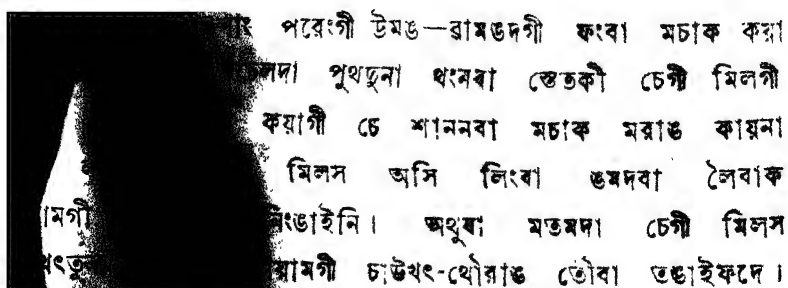 পরেংগী উমঙ—রামঙদগী ফংবা মচাক কয়া
পুথতুনা থংনবা স্তেতকী চেগী মিলগী
কয়াগী চে শাননবা মচাক মরাঙ কায়না
মিলস অসি লিংবা ঙমদবা লৈবাক
অথুবা মতমদা চেগী মিলস
চাউখৎ-থৌরাঙ তৌবা তঙাইফদে।